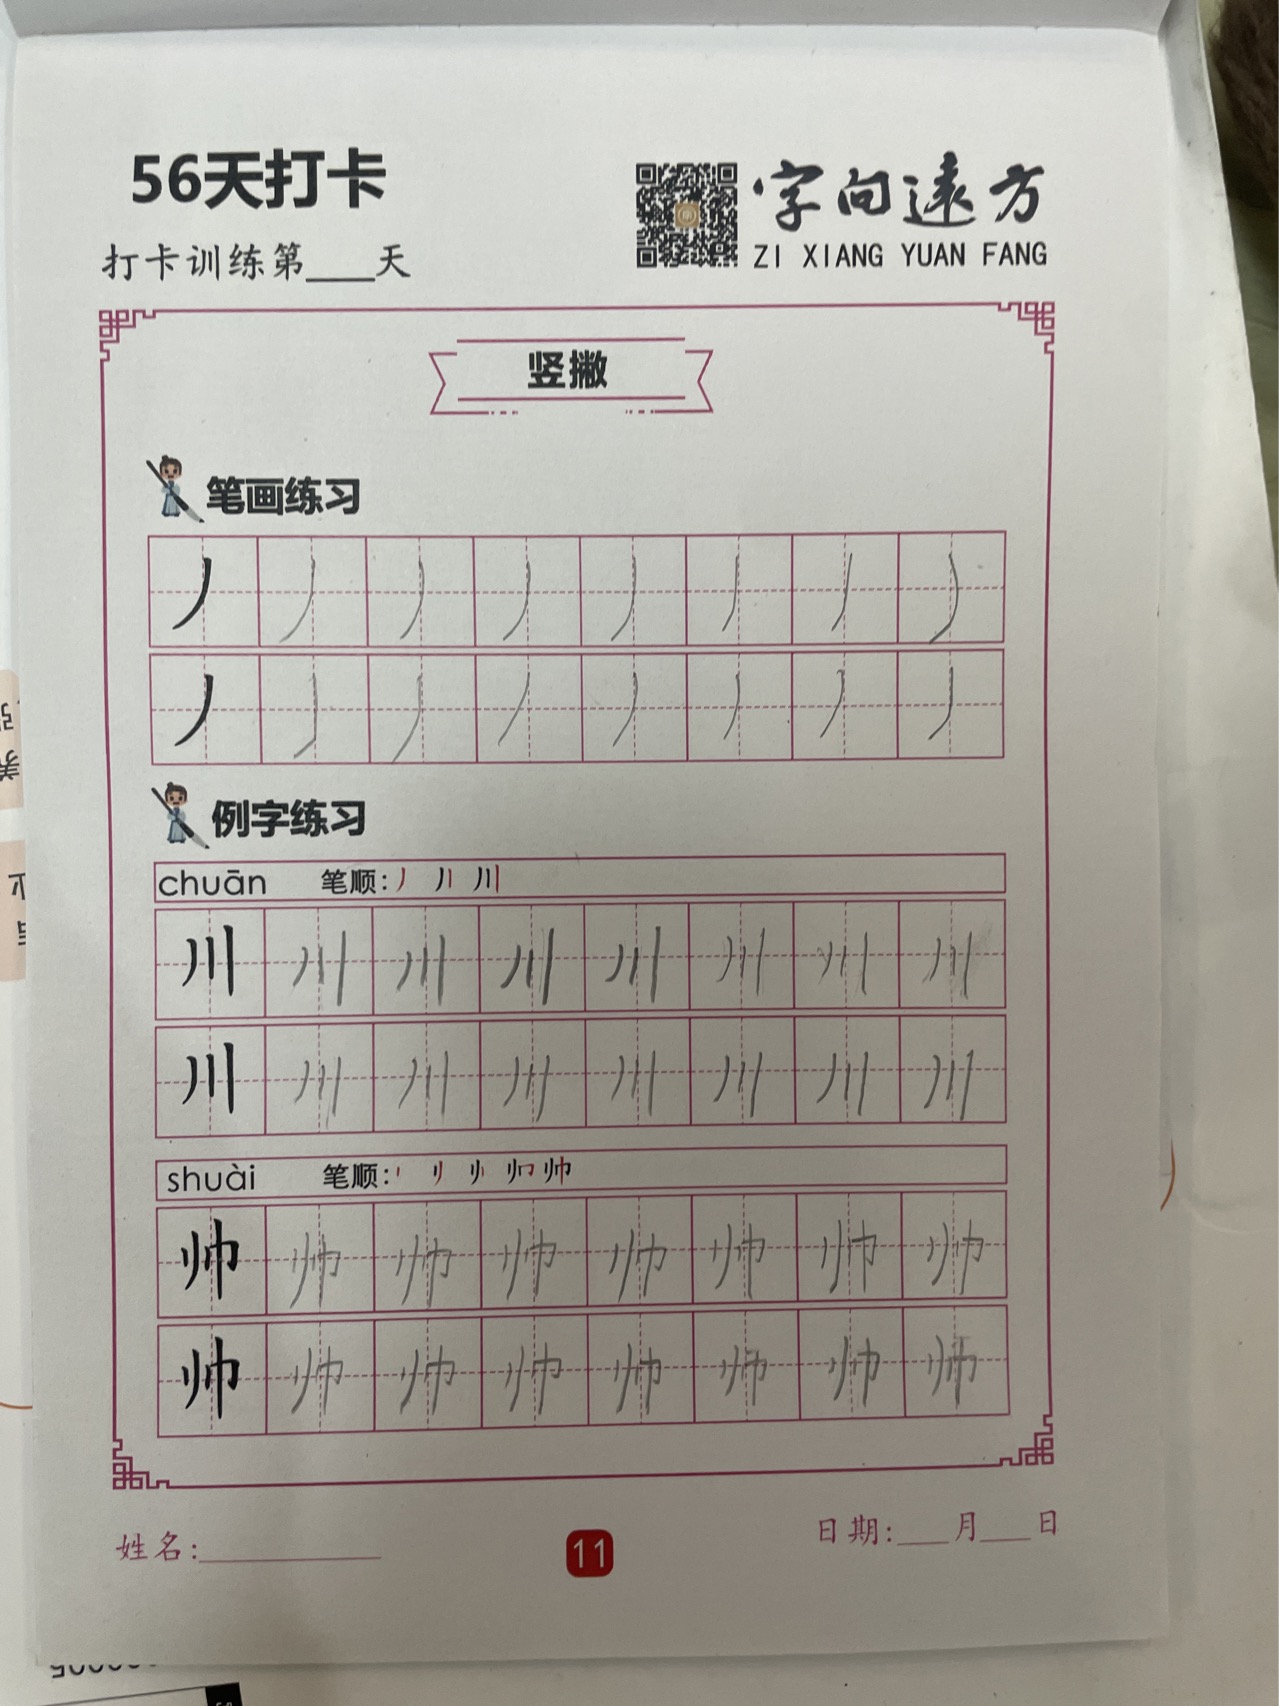 56天打卡
字向远方
打卡训练第____天
ZI XIANG YUAN FANG
竖撇
笔画练习
丿丿丿丿丿丿丿丿
丿丿丿丿丿丿丿丿
例字练习
chuān 笔顺:
川川川川川川川川
川川川川川川川川
shuài 笔顺:
帅帅帅帅帅帅帅帅
帅帅帅帅帅帅帅帅
姓名:
11
日期:___月___日